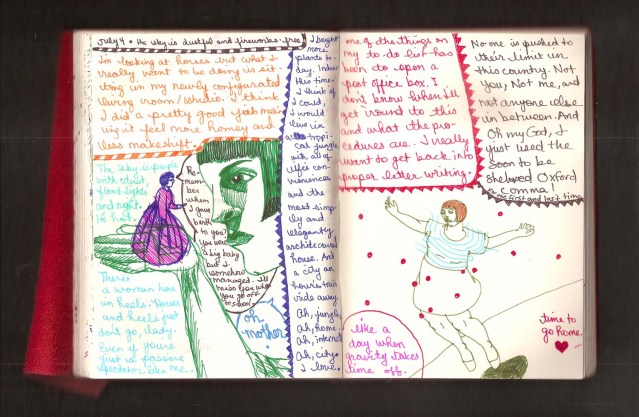 July 4 • the sky is dustful and fireworks-free
I'm looking at horses but what I
really want to be doing is sit-
ting in my newly configurated
living room/studio. I think
I did a pretty good job making
it feel more homey and
less makeshift.
The sky is purple
with dust
flood lights
and night.
It's hot.
Re-
mem-
ber
when
I gave
birth
to you?
You were
a big baby
but I
somehow
managed. I'll
miss you when
you go off
to school.
oh
mother!
There's
a woman here
in heels. Horses
and heels just
don't go, lady.
Even if you're
just a passive
spectator like me.
I bought
more
plants to-
day. Indoor
this time.
I think if
I could,
I would
live in
a tropi-
cal jungle
with all of
life's con-
veniences
and the
most simp-
ly and
elegantly
architectured
house. And
a city an
hour's train
ride away.
Ah, jungle,
Ah, home.
Ah, internet
Ah, city
I love.
One of the things on
my to-do list has
been to open a
post office box. I
don't know when I'll
get round to this
and what the pro-
cedures are. I really
want to get back into
proper letter writing.
No one is pushed to
their limit in
this country. Not
you, Not me, and
not anyone else
in between. And
Oh my God, I
just used the
soon to be
shelved Oxford
comma!
first and last time
like a
day when
gravity takes
time off.
time to
go home.